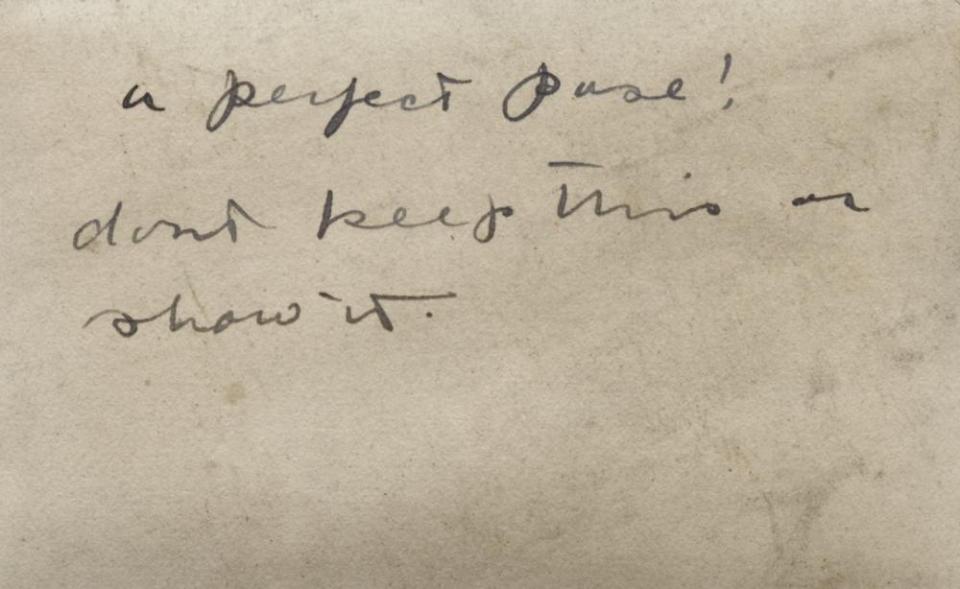 a perfect pose!
dont keep this or
show it.